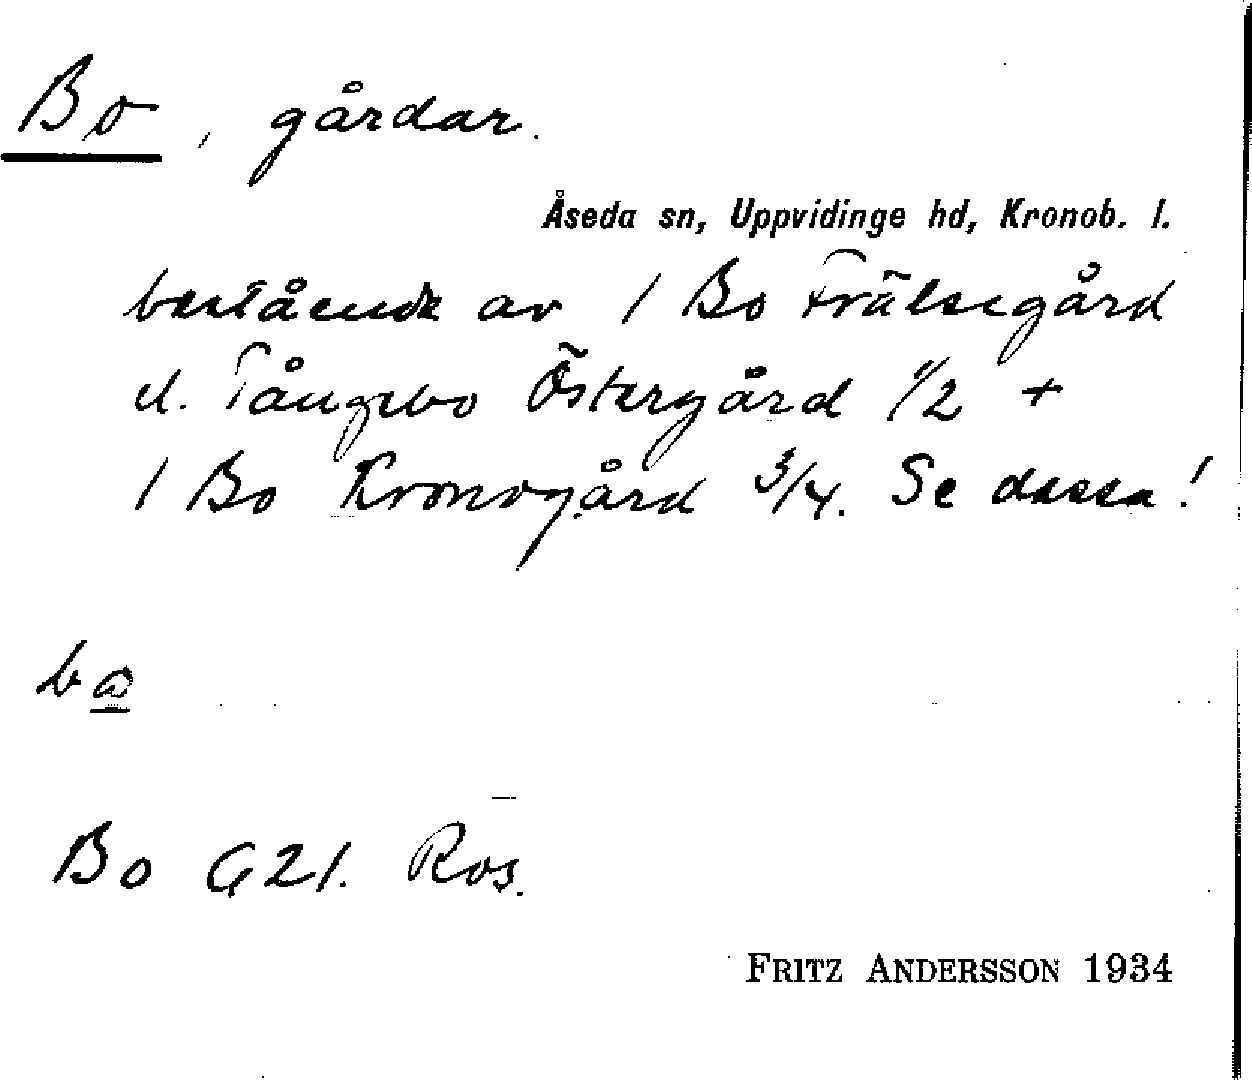 Bo, gårdar.
Åseda sn, Uppvidinge hd, Kronob. l.
bestående av 1 Bo Frälsegård
el. Tångebo Östergård 1/2 +
1 Bo Kronogård 3/4. Se dessa!
ba
Bo G21. Ros.
FRITZ ANDERSSON 1934